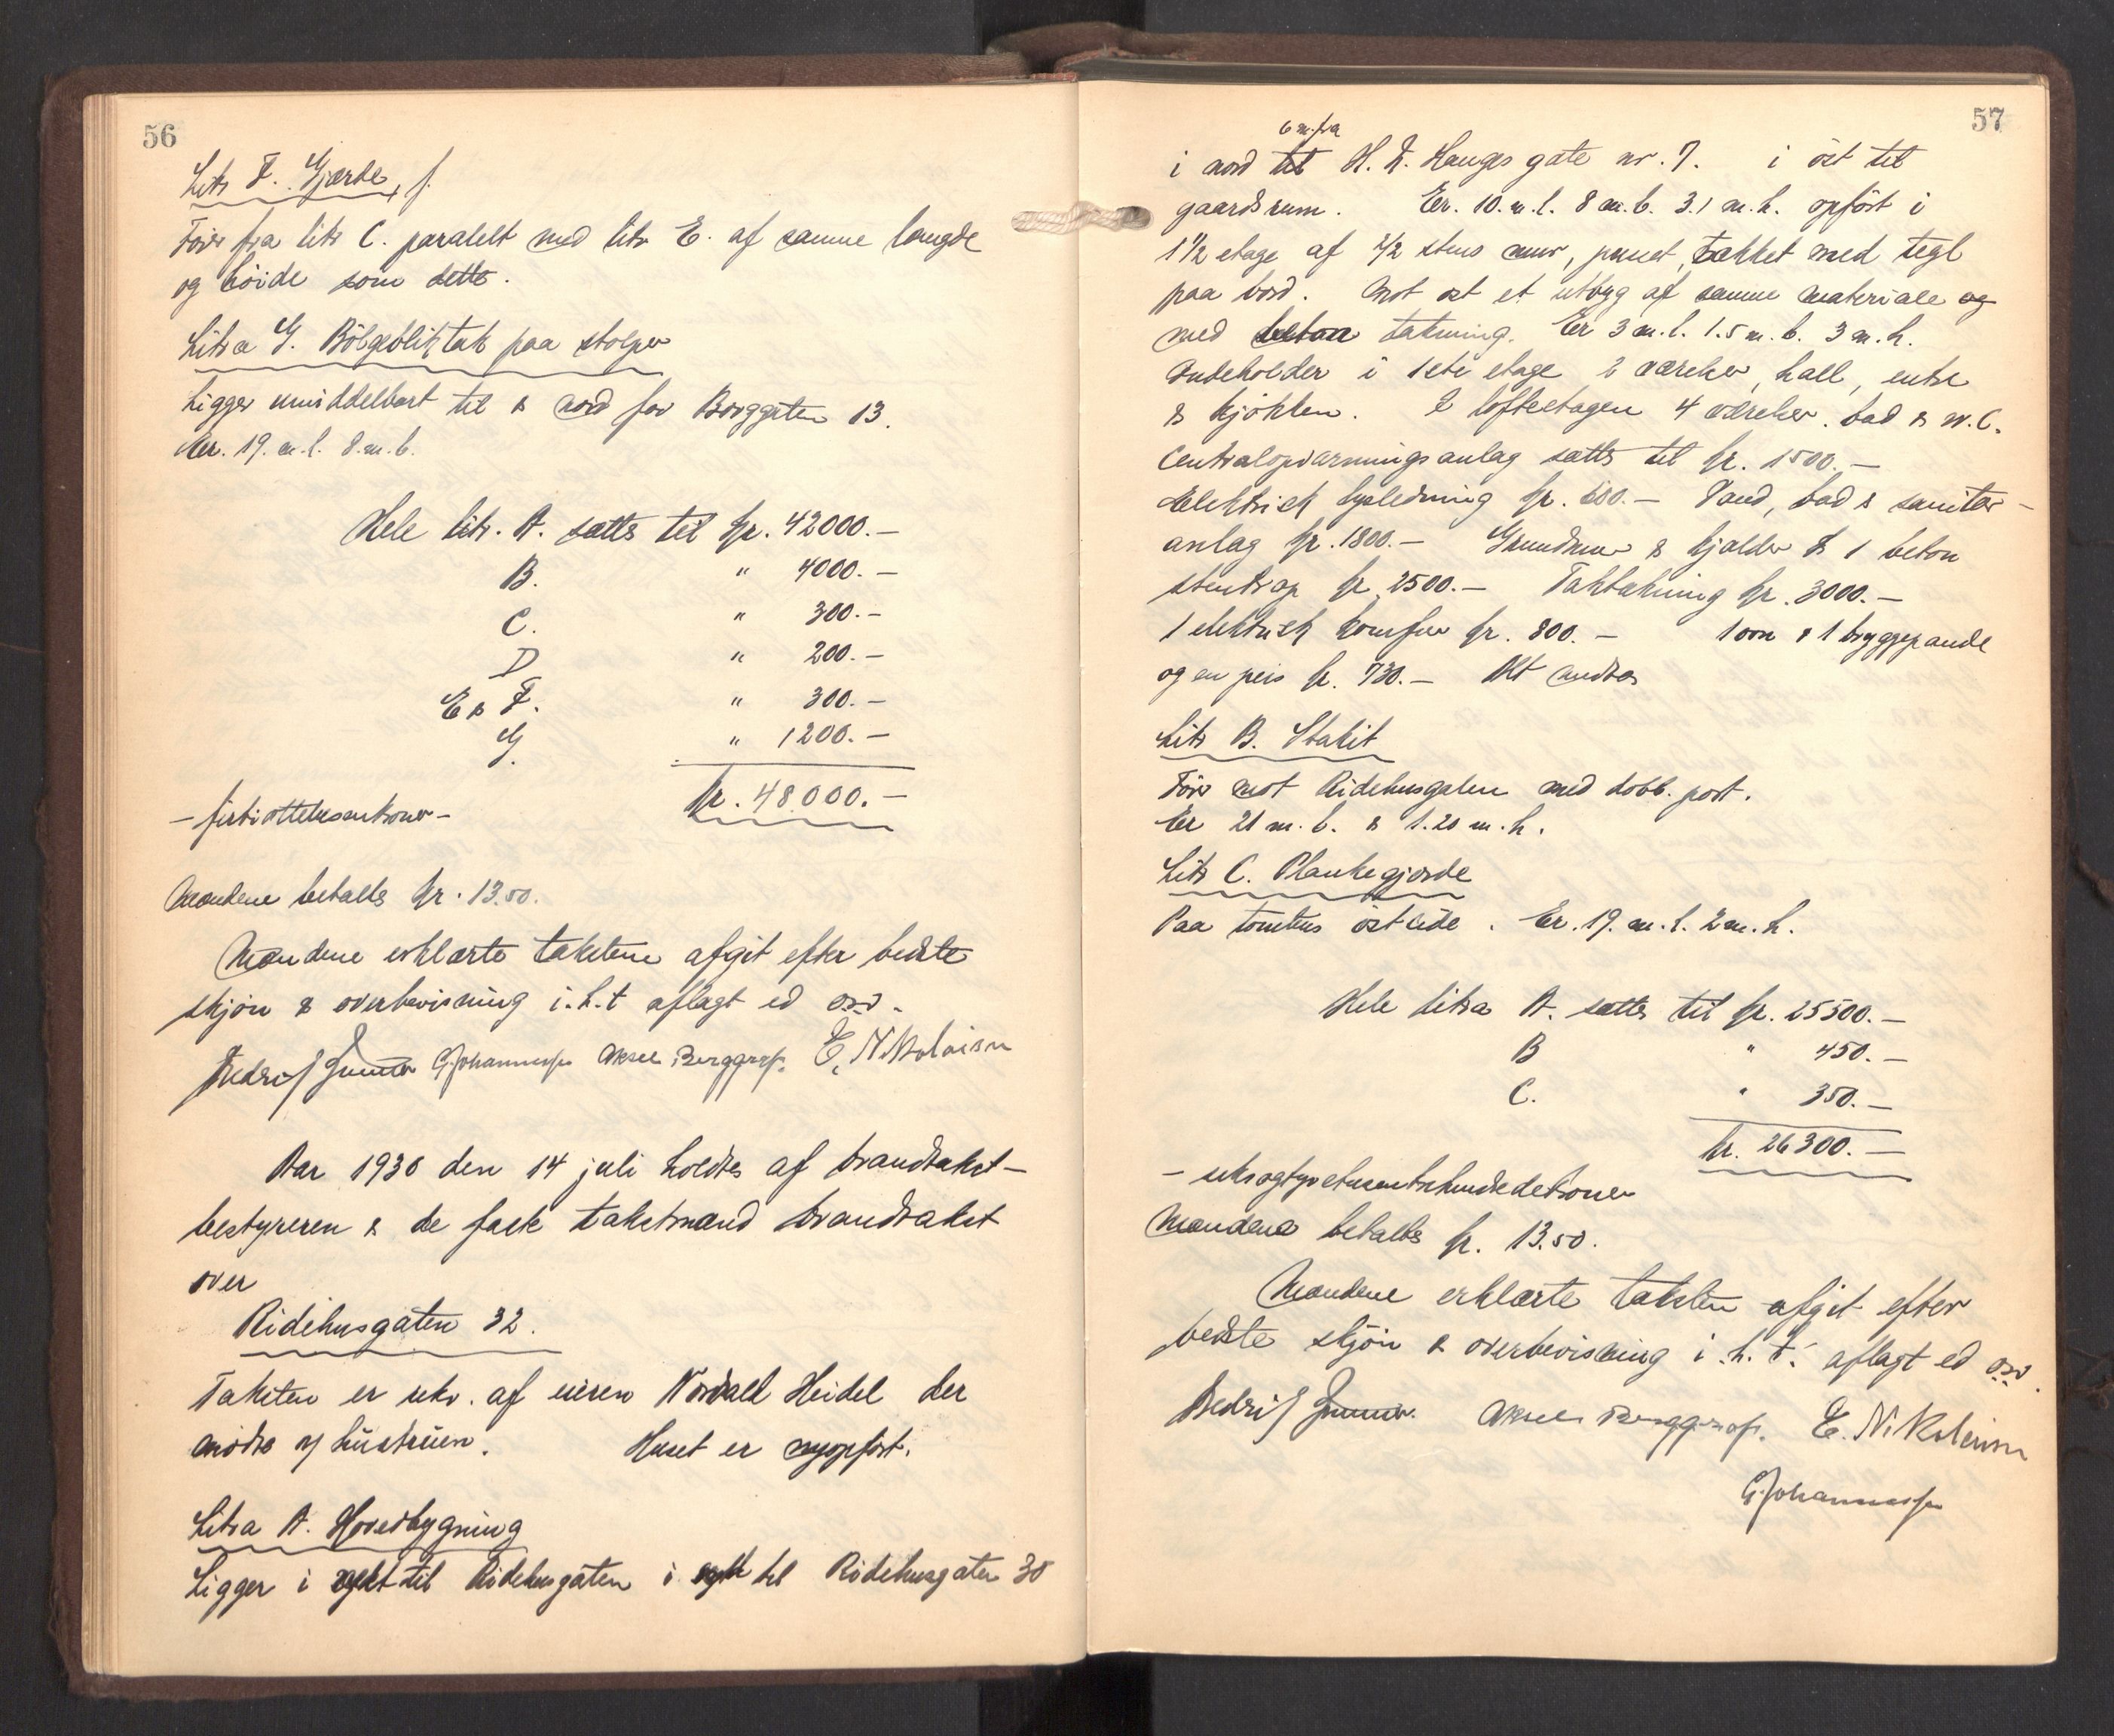 56
Litr F. Gjærde
Fører fra litr C. paralelt med litr E. af samme længde
og høide som dette.
Litra G. Bølgebliktak paa stolper
Ligger umiddelbart til & nord for Borggaten 13.
Er. 19. m. l. 8. m. b.
Hele litr. A. sættes til kr. 42000.-
B. " 4000.-
C. " 300.-
D " 200.-
E & F. " 300.-
G. " 1200.-
- førtiottetusenkroner - kr. 48000.-
Mændene betaltes kr. 13.50.
Mændene erklærte taksten afgit efter bedste
skjøn & overbevisning i. h. t aflagt ed osv.
G. Johannessen Aksel Berggraf. E. Nikolaisen
Aar 1930 den 14 juli holdtes af brandtakst-
bestyreren & de faste takstmænd brandtakst
over
Ridehusgaten 32.
Taksten er rekv. af eieren Nordahl Heidel der
møtte v/ hustruen. Huset er nyopført.
Litra A. Hovedbygning
Ligger i til Ridehusgaten i til Ridehusgaten 30
57
6 m. fra
i nord til H. N. Hauges gate nr. 7. i øst til
gaardsrum. Er. 10. m. l. 8 m. b. 3.1 m. h. opført i
1 1/2 etage af 2/2 stens mur, pusset, tækket med tegl
paa bord. Mot øst et utbyg af samme materiale og
med beton tækning. Er 3 m. l. 1.5 m. b. 3 m. h.
Indeholder i 1ste etage 2 værelser, hall, entre
& kjøkken. I loftsetagen 4 værelser. bad & W. C.
Centralopvarmningsanlæg sættes til kr. 1500.-
Elektrisk lysledning kr. 600.- Vand, bad & sanitær-
anlæg kr. 1800.- Grundmur & kjælder & 1 beton
stentrap kr. 2500.- Taktækning kr. 3000.-
1 elektrisk komfur kr. 800.- 1 ovn & 1 bryggepande
og en peis kr. 730.- Alt andres
Litr B. Stakit
Fører mot Ridehusgaten med dobb. port.
Er 21 m. l. & 1.20 m. h.
Litr C. Plankegjærde
Paa tomtens østside. Er. 19. m. l. 2 m. h.
Hele litra A. sættes til kr. 25500.-
B " 450.-
C. " 350.-
kr. 26300.-
- seksogtyvetusentrehundredekroner
Mændene betaltes kr. 13.50.
Mændene erklærte taksten afgit efter
bedste skjøn & overbevisning i. h. t. aflagt ed osv.
Aksel Berggraf. E. Nikolaisen
G. Johannessen